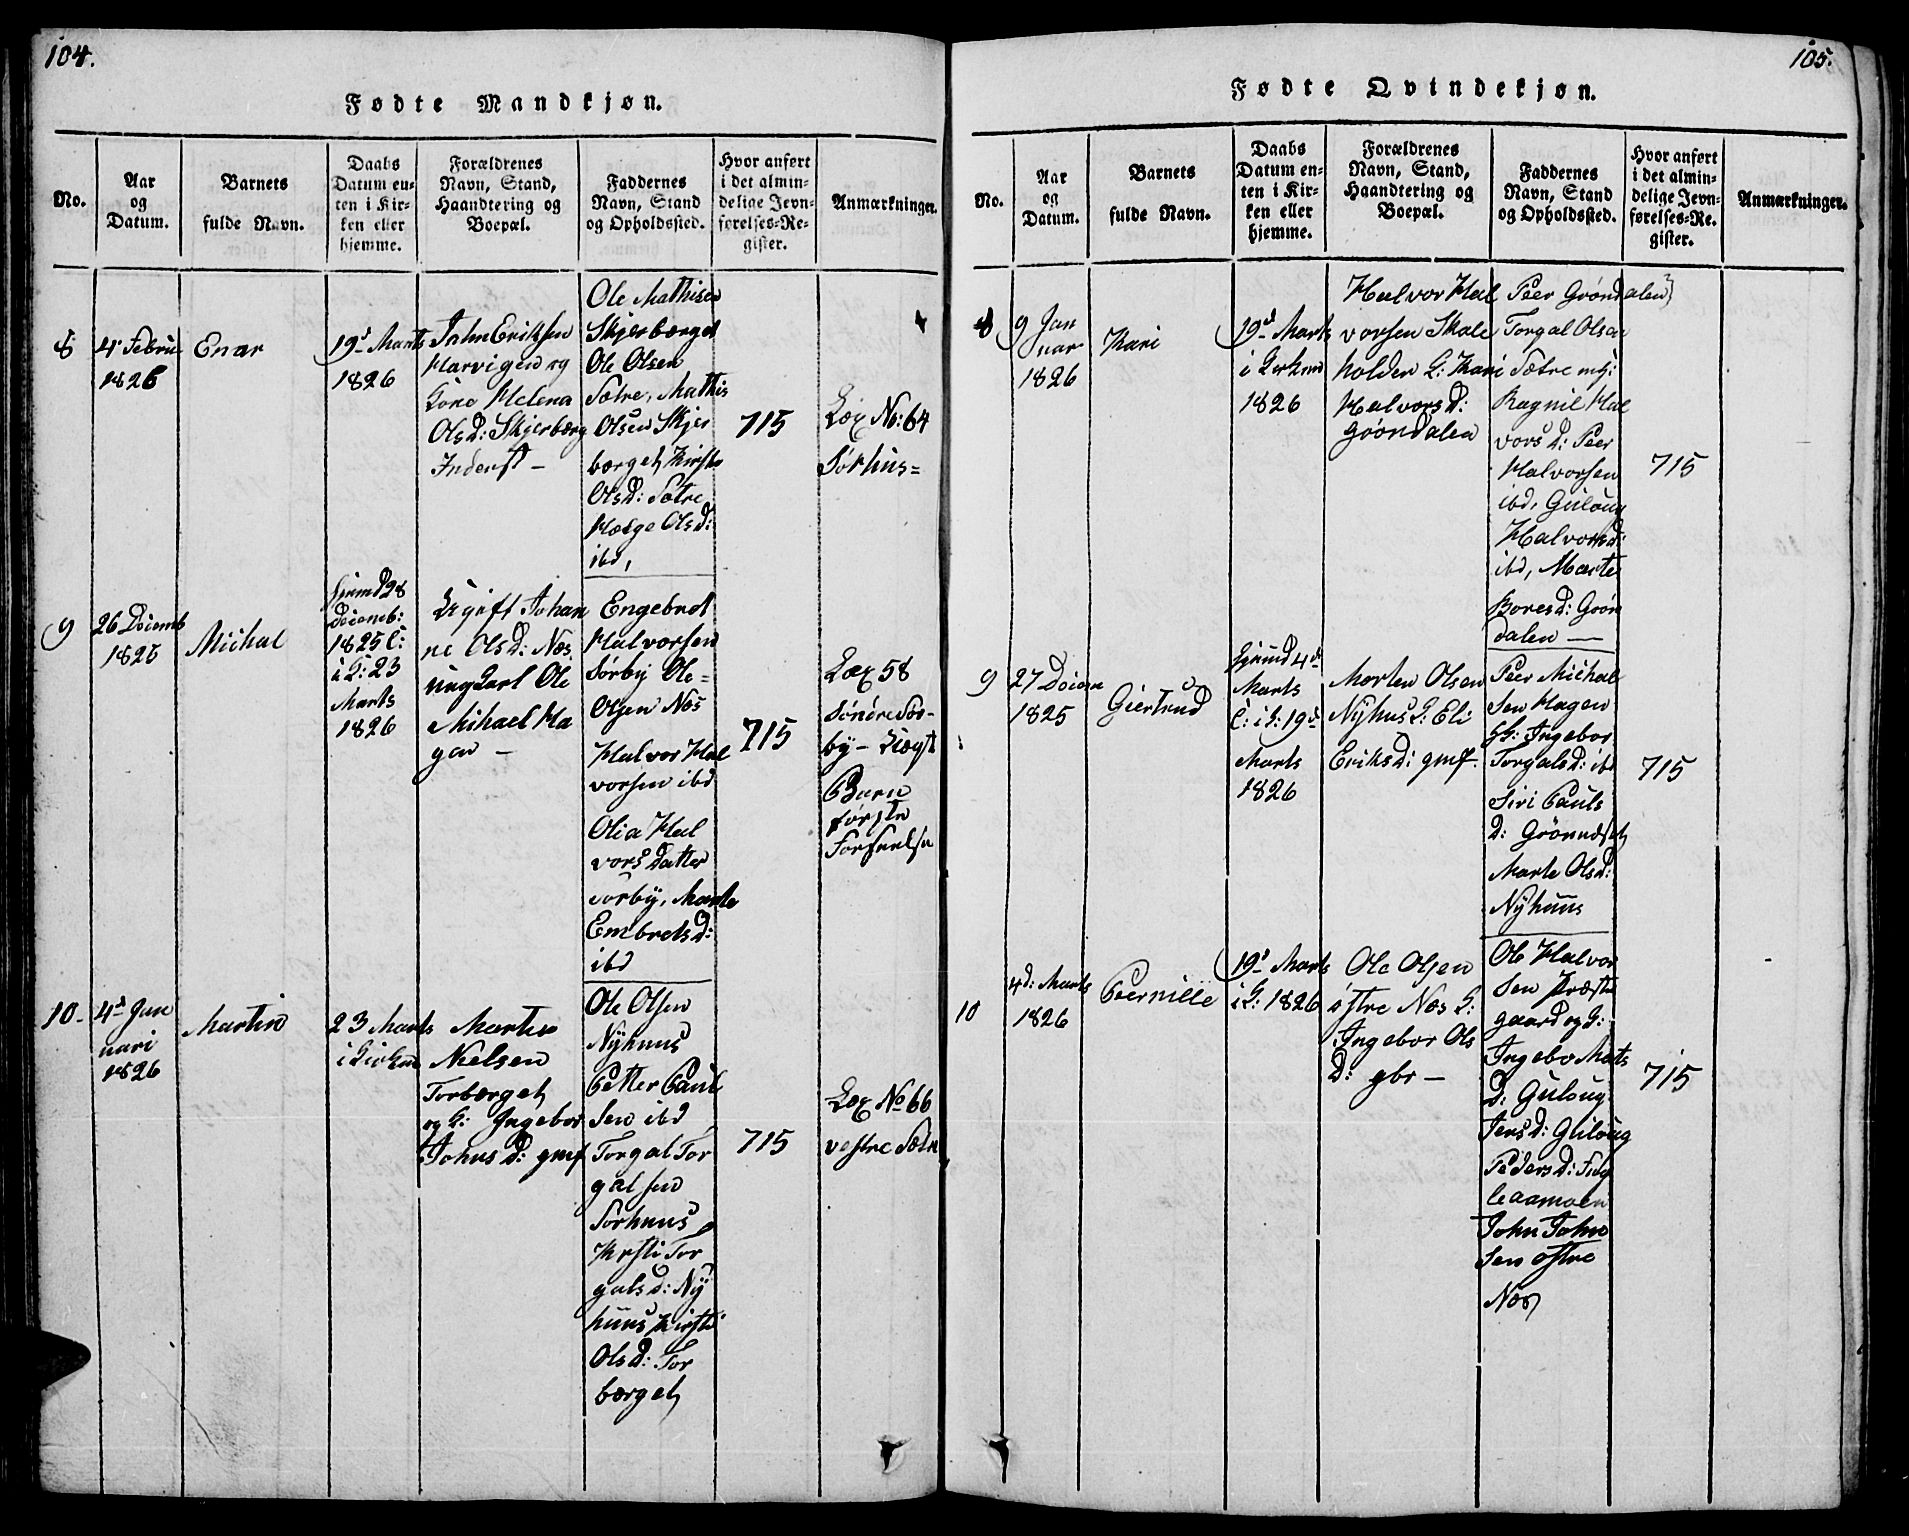 104.
Fødte Mandkjøn.
No.
Aar
og
Datum.
Barnets
fulde Navn.
Daabs
Datum en-
ten i Kir-
ken eller
hjemme.
Forældrenes
Navn, Stand,
Haandtering og
Boepæl.
Faddernes
Navn, Stand
og Opholdssted.
Hvor anført
i det almin-
delige Jevn-
førelses-Re-
gister.
Anmærkninger.
8
4. Febru
1826
Enar
19d Marts
1826
John Eriksen
Harvigen og
Kone Helena
Olsd: Skjerbærg
Inderst -
Ole Mathisen
Skjerbærget
Ole Olsen
Sætre, Mathis
Olsen Skjer
bærget, Kirste
Olsd: Sætre
Helge Olsd:
ibd,
715
Læg No: 64
Sørhus=
9
26 Decemb
1825
Michal
hiemd 28
Decemb:
1825 C:
i K: 23
Marts
1826
Ugift Johan
ne Olsd: Næs
ung Karl Ole
Mihael Ha
gen -
Engebret
Halvorsen
Sørby Ole=
Olsen Næs
Halvor Hal
vorsen ibd
Olia Hal
vors Datter
Sørby, Marte
Embrets d:
ibd
715
Læg 58
Søndre Sør-
by - Uægt
Barn
første
Forseelse
10-
4d Jan
uari
1826
Martin
23 Marts
i Kirken
Morten
Nielsen
Torbærget
og K: Ingebor
Johns d: gmf
Ole Olsen
Nyhuus
Petter Paul
sen ibd
Torgal Tor
galsen
Sørhuus
Kirsti Tor
galsd: Ny
huus Kirsti
Olsd: Tor
bærget
715
Læg No 66
vestre Sætre
105.
Fødte Qvindekjøn.
No.
Aar
og
Datum.
Barnets
fulde Navn.
Daabs
Datum en-
ten i Kir-
ken eller
hjemme.
Forældrenes
Navn, Stand,
Haandtering og
Boepæl.
Faddernes
Navn, Stand
og Opholdssted.
Hvor anført
i det almin-
delige Jevn-
førelses-Re-
gister.
Anmærkninger.
8
9 Jan
uar
1826
Kari
19d Marts
i Kirken
1826
Halvor Hal
vorsen Skole
holder K: Kari
Halvorsd:
Grøndalen
Peer Grøndalen
Torgal Olsen
i Sætre
Ragnil Hal
vors d: Peer
Halvorsen
ibd, Guloug
Halvorsd:
ibd, Marte
Boresd: Grøn
dalen -
715
9
27 Decem
1825
Giertrud
hjemd 4de
Marts
C: i K: 19d
Marts
1826
Morten Olsen
Nyhus K: Eli
Eriksd: gmf.
Peer Michal
sen Hagen
Ingebor
Torgalsd: ibd
Siri Pauls
d: Grønædset
Marte Olsd:
Nyhuus
715
10
4d: Marts
1826
Peernille
19d Marts
i K: 1826
Ole Olsen
østre Næs K:
Ingebor Ols
d: gbr -
Ole Halvor
sen Præste
gaard og K:
Ingebor Mats
d: Guloug
Jensd: Guloug
Pedersd: Fug
leaamoen
John John
sen østre
Næs
715